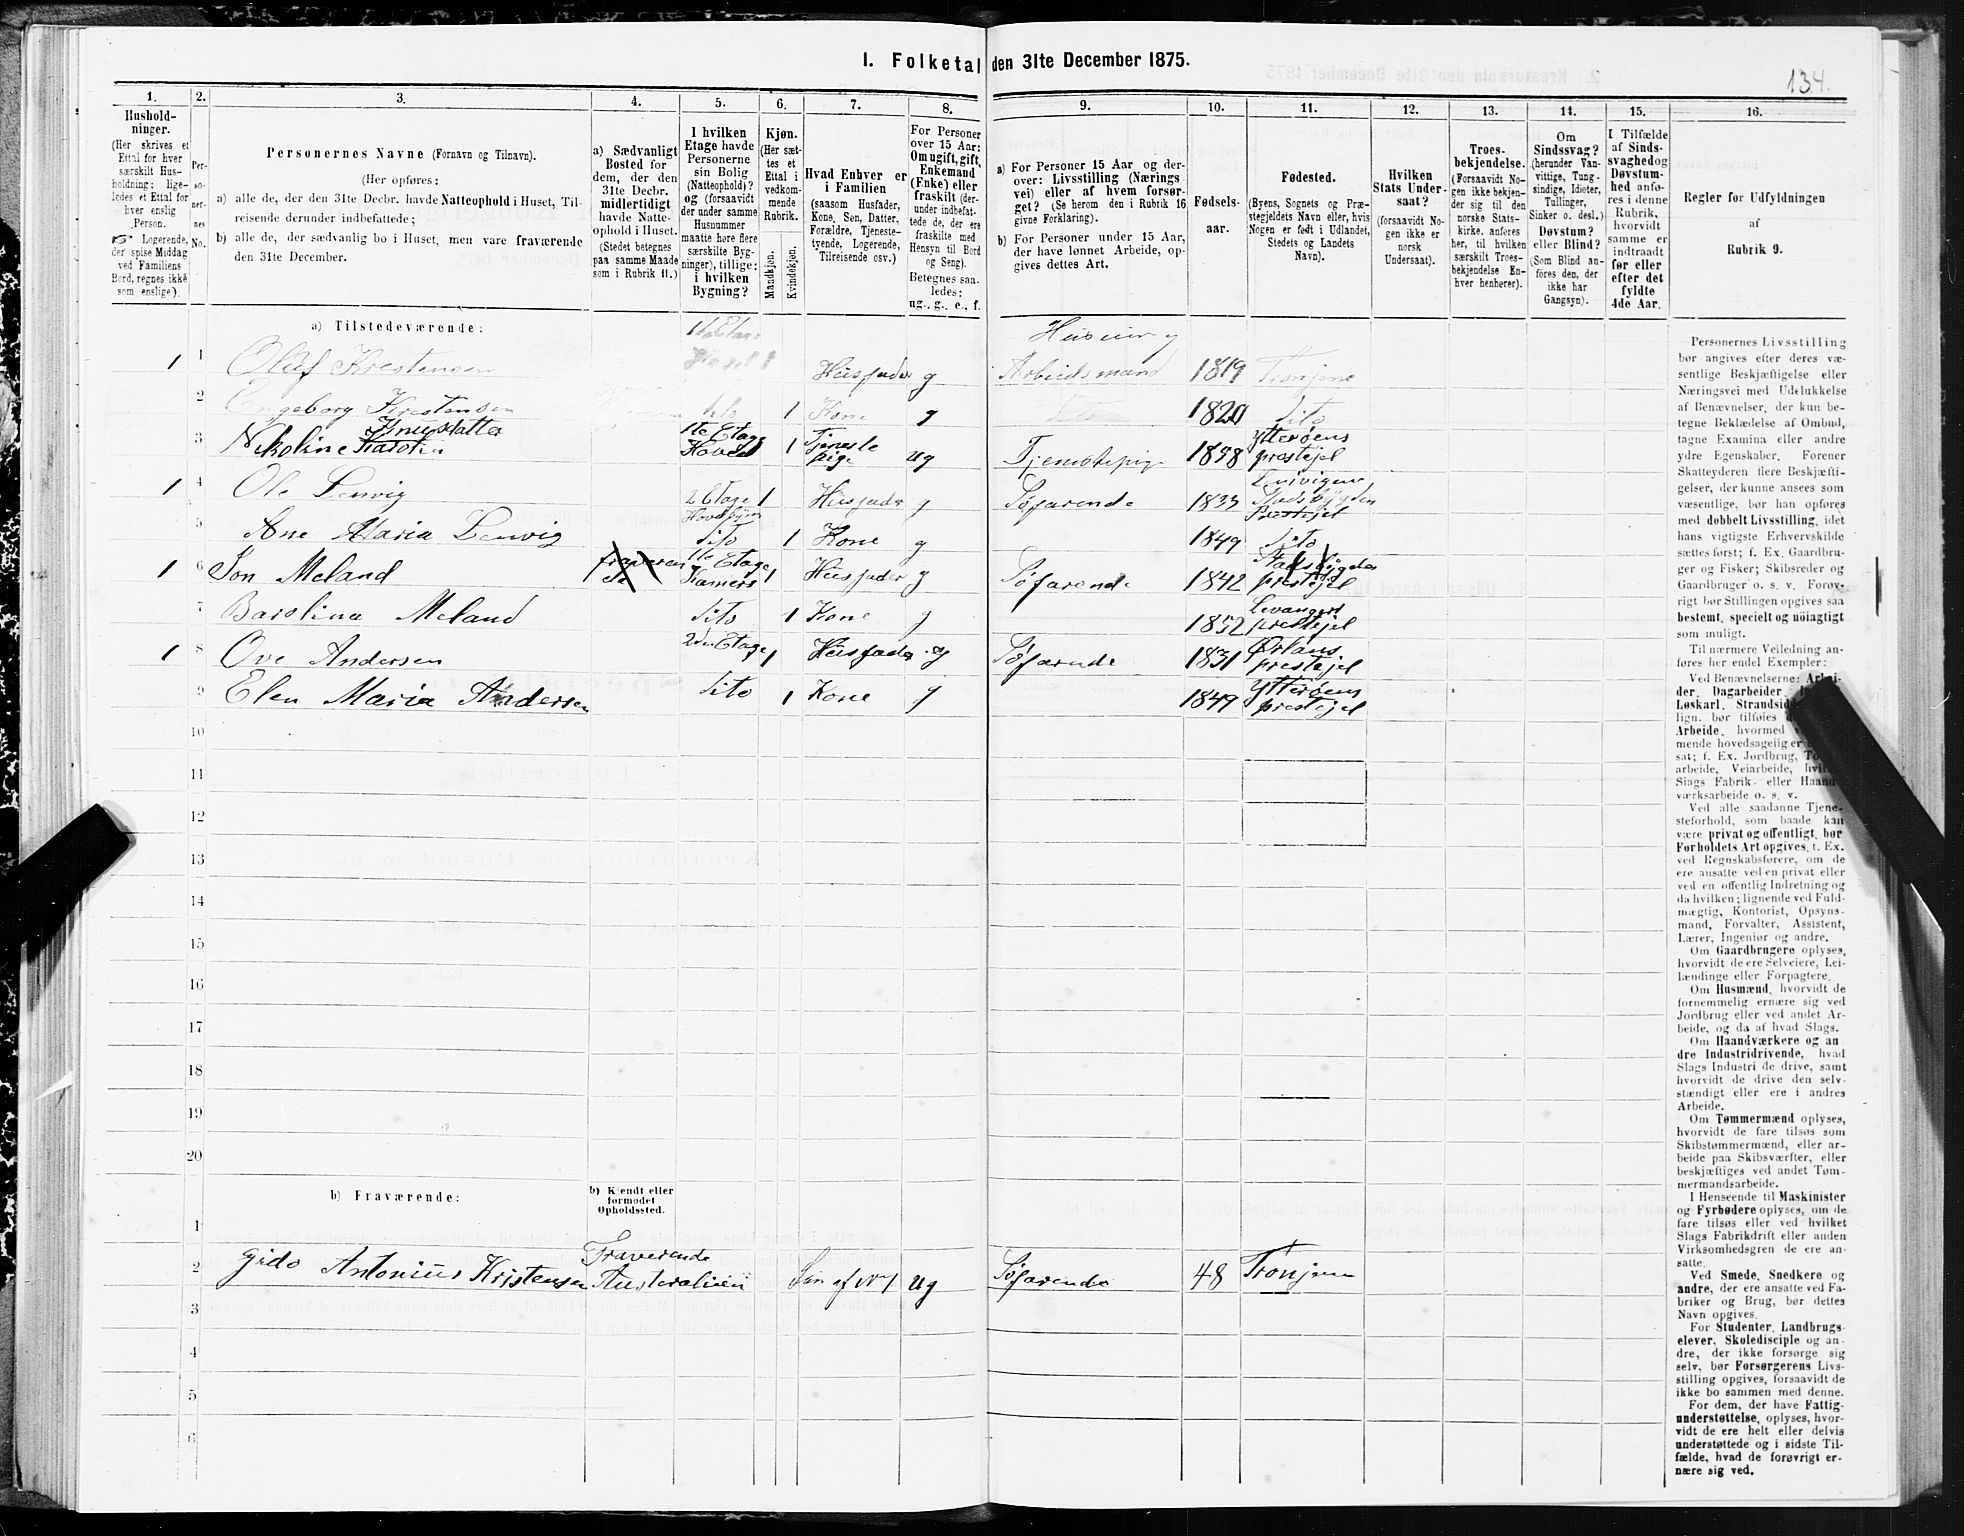 1. Folketal den 31te December 1875.
134.
1.
2.
3.
4.
5.
6.
7.
8.
9.
10.
11.
12.
13.
14.
15.
16.
Hushold-
ninger.
(Her skrives et
Ettal for hver
særskilt Hus-
holdning; lige-
ledes et Ettal for
hver enslig
Person.
☞ Logerende,
der spise Middag
ved Familiens
Bord, regnes ikke
som enslige).
Per-
so-
ner-
nes
No.
Personernes Navne (Fornavn og Tilnavn).
(Her opføres:
a) alle de, der den 31te Decbr. havde Natteophold i Huset, Til-
reisende derunder indbefattede;
b) alle de, der sædvanlig bo i Huset, men vare fraværende
den 31te December.
a) Sædvanligt
Bosted for
dem, der den
31te Decbr.
midlertidigt
havde Natte-
ophold i Huset.
(Stedet betegnes
paa samme Maade
som i Rubrik 11.)
I hvilken
Etage havde
Personerne
sin Bolig
(Natteophold)?
og (forsaavidt
der under samme
Husnummer
maatte høre flere
særskilte Byg-
ninger), tillige:
i hvilken
Bygning?
Kjøn.
(Her sæt-
tes et
Ettal i
vedkom-
mende
Rubrik.
Mandkjøn.
Kvindekjøn.
Hvad Enhver er
i Familien
(saasom Husfader,
Kone, Søn, Datter,
Forældre, Tjeneste-
tyende, Logerende,
Tilreisende osv.)
For Personer
over 15 Aar:
Om ugift, gift,
Enkemand
(Enke) eller
fraskilt (der-
under indbefat-
tede de, der ere
fraskilte med
Hensyn til Bord
og Seng).
Betegnes saa-
ledes:
ug., g., e., f.
a) For Personer 15 Aar og der-
over: Livsstilling (Nærings-
vei) eller af hvem forsør-
get? (Se herom den i Rubrik 16
givne Forklaring).
b) For Personer under 15 Aar,
der have lønnet Arbeide, op-
gives dettes Art.
Fødsels-
aar.
Fødested.
(Byens, Sognets og Præ-
stegjeldets Navn eller, hvis
Nogen er født i Udlandet,
Stedets og Landets
Navn).
Hvilken
Stats Under-
saat?
(forsaavidt No-
gen ikke er
norsk
Undersaat).
Troes-
bekjendelse.
(Forsaavidt No-
gen ikke bekjen-
der sig til den
norske Stats-
kirke, anføres
her, til hvilken
særskilt Troes-
bekjendelse En-
hver henhører).
Om
Sindssvag?
(herunder Van-
vittige, Tung-
sindige, Idioter,
Tullinger,
Sinker o. desl.)
Døvstum?
eller Blind?
(Som Blind an-
føres den, der
ikke har
Gangsyn).
I Tilfælde
af Sinds-
svaghed og
Døvstum-
hed anfø-
res i denne
Rubrik,
hvorvidt
samme er
indtraadt
før eller
efter det
fyldte
4de Aar.
Regler for Udfyldningen
af
Rubrik 9.
a) Tilstedeværende:
1 1 Olaf Krestensen Husfader g Arbeidsmand 1819 Tronjene
2 Engeborg Krestensen dito 1 Kone g 1820 dito
3 Nikoline Knusdatter 1te Etage 1 Tjeneste pige ug Tjenstepige 1858 Ytterøens prestejel
1 4 Ole Lenvig 2 Etage 1 Husfader g Søfarende 1833 Stadsbygden Prestejel
5 Ane Maria Lenvig dito 1 Kone g 1849 dito
1 6 Jon Meland 1te Etage Kamers 1 Husfader g Søfarende 1842 Stadsbygden prestejel
7 Barolina Meland dito 1 Kone g 1852 Levangers prestejel
1 8 Ove Andersen 2den Etage 1 Husfader g Søfarende 1831 Ørlans prestejel
9 Elen Maria Andersen dito 1 Kone g 1849 Ytterøens prestejel
10
11
12
13
14
15
16
17
18
19
20
b) Fraværende:
b) Kjendt eller
formodet
Opholdssted.
1
2 Antonius Kristensen Fraverende Australien Søn af No 1 ug Søfarende 48 Tronjem
3
4
5
6
Personernes Livsstilling
bør angives efter deres væ-
sentlige Beskjæftigelse eller
Næringsvei med Udelukkelse
af Benævnelser, der kun be-
tegne Beklædelse af Ombud,
tagne Examina eller andre
ydre Egenskaber. Forener
Skatteyderen flere Beskjæfti-
gelser, der kunne ansees som
væsentlige, bør han opføres
med dobbelt Livsstilling, idet
hans vigtigste Erhvervskilde
sættes først; f. Ex. Gaardbru-
ger og Fisker; Skibsreder og
Gaardbruger o. s. v. Forøv-
rigt bør Stillingen opgives saa
bestemt, specielt og nøiagtigt
som muligt.
Til nærmere Veiledning an-
føres her endel Exempler:
Ved Benævnelserne:
der, Dagarbeider,
Løskarl, Strandsid
lign. bør tilføies
Arbeide, hvormed
mende hovedsagelig er
sat; f. Ex. Jordbrug,
arbeide, Veiarbeide,
Slags Fabrik- eller Haand-
værksarbeide o. s. v.
Ved alle saadanne Tjene-
steforhold, som baade kan
være privat og offentligt, bør
Forholdets Art opgives, f. Ex.
ved Regnskabsførere, om de
ere ansatte ved en privat eller
ved en offentlig Indretning og
da hvilken; lignende ved Fuld-
mægtig, Kontorist, Opsyns-
mand, Forvalter, Assistent,
Lærer, Ingeniør og andre.
Om Gaardbrugere oplyses,
hvorvidt de ere Selveiere, Lei-
lændinge eller Forpagtere.
Om Husmænd, hvorvidt de
fornemmelig ernære sig ved
Jordbrug eller ved andet Ar-
beide, og da af hvad Slags.
Om Haandværkere og an-
dre Industridrivende, hvad
Slags Industri de drive, samt
hvorvidt de drive den selv-
stændigt eller ere i andres
Arbeide.
Om Tømmermænd oplyses,
hvorvidt de fare tilsøs som
Skibstømmermænd, eller ar-
beide paa Skibsværfter, eller
beskjæftiges ved andet Tøm-
mermandsarbeide.
I Henseende til Maskinister
og Fyrbødere oplyses, om de
fare tilsøs eller ved hvilket
Slags Fabrikdrift eller anden
Virksomhedsgren de ere an-
satte.
Ved Smede, Snedkere og
andre, der ere ansatte ved Fa-
briker og Brug, bør dettes
Navn opgives.
For Studenter, Landbrugs-
elever, Skoledisciple og an-
dre, der ikke forsørge sig
selv, bør Forsørgerens Livs-
stilling opgives, forsaavidt de
ikke bo sammen med denne.
For dem, der have Fattig-
understøttelse, oplyses, hvor-
vidt de ere helt eller delvis
understøttede og i sidste Til-
fælde, hvad de forøvrigt er-
nære sig ved.